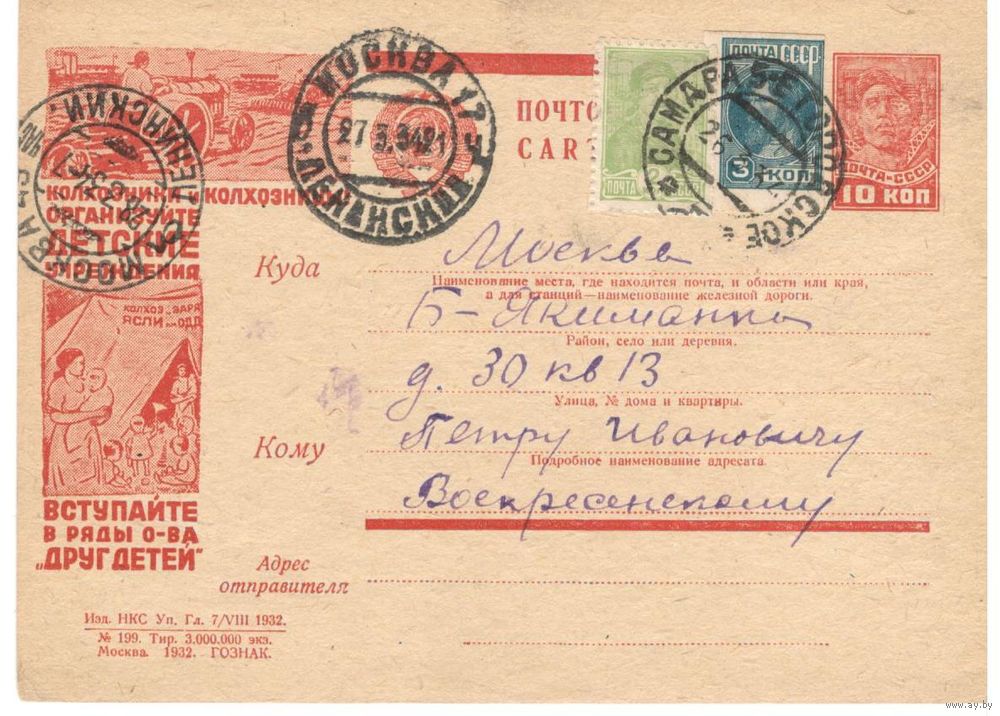 МОСКВА 17
27 3.34 21
ЛЕНИНСКИЙ
САМАРА
ПОЧТА СССР
3 КОП
ПОЧТА-СССР
10 КОП
МОСКВА
ЛЕНИНСКИЙ
ПОЧТО
CAR
КОЛХОЗНИКИ И КОЛХОЗНИЦЫ
ОРГАНИЗУЙТЕ
ДЕТСКИЕ
УЧРЕЖДЕНИЯ
ЯСЛИ ОДД
ВСТУПАЙТЕ
В РЯДЫ О-ВА
„ДРУГ ДЕТЕЙ"
Куда
Москва
Наименование места, где находится почта, и области или края,
а для станций—наименование железной дороги.
Б-Якиманка
Район, село или деревня.
д. 30 кв 13
Улица, № дома и квартиры.
Кому
Петру Ивановичу
Подробное наименование адресата.
Воскресенскому
Адрес
отправителя
Изд. НКС Уп. Гл. 7/VIII 1932.
№ 199. Тир. 3.000.000 экз.
Москва. 1932. ГОЗНАК.
www.ay.by